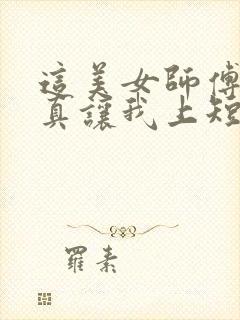 這美女師傅
真讓我上短
羅素